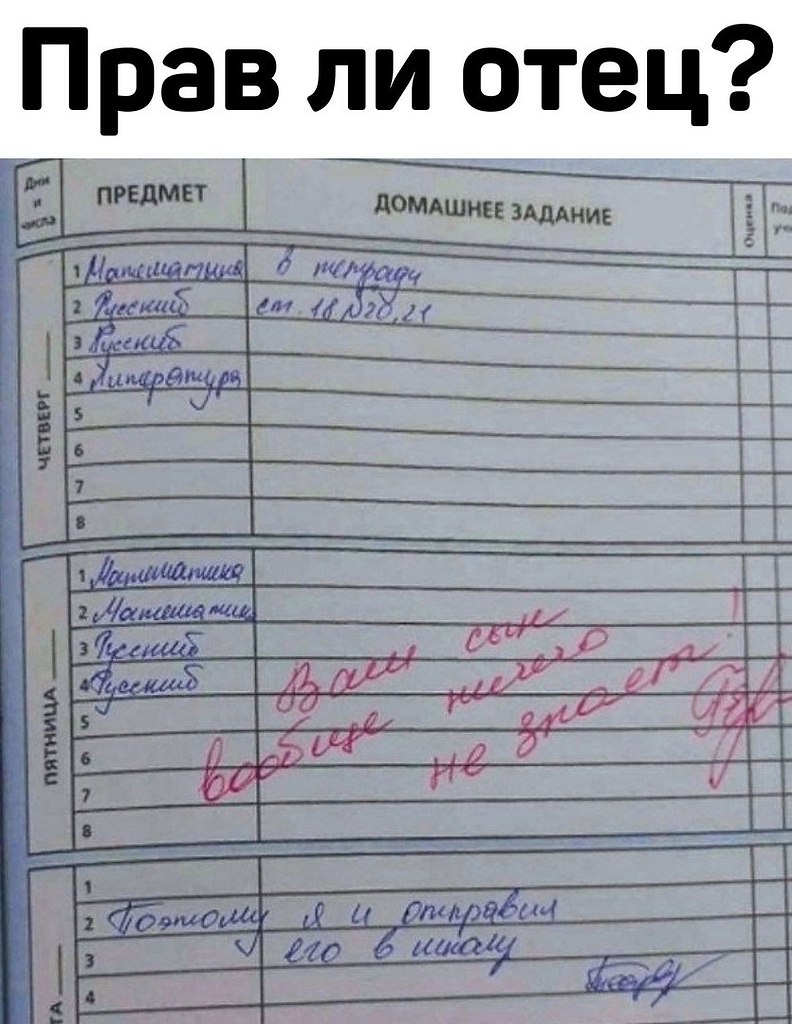 Прав ли отец?
Дни и числа
ПРЕДМЕТ
ДОМАШНЕЕ ЗАДАНИЕ
Оценка
ЧЕТВЕРГ
1 Математика в тетради
2 Русский ст. 18 №20, 21
3 Русский
4 Литература
5
6
7
8
ПЯТНИЦА
1 Математика
2 Математика
3 Русский
4 Русский
5
6
7
8
Ваш сын
вообще ничего
не знает!
1
2 Поэтому я и отправил
3 его в школу
4